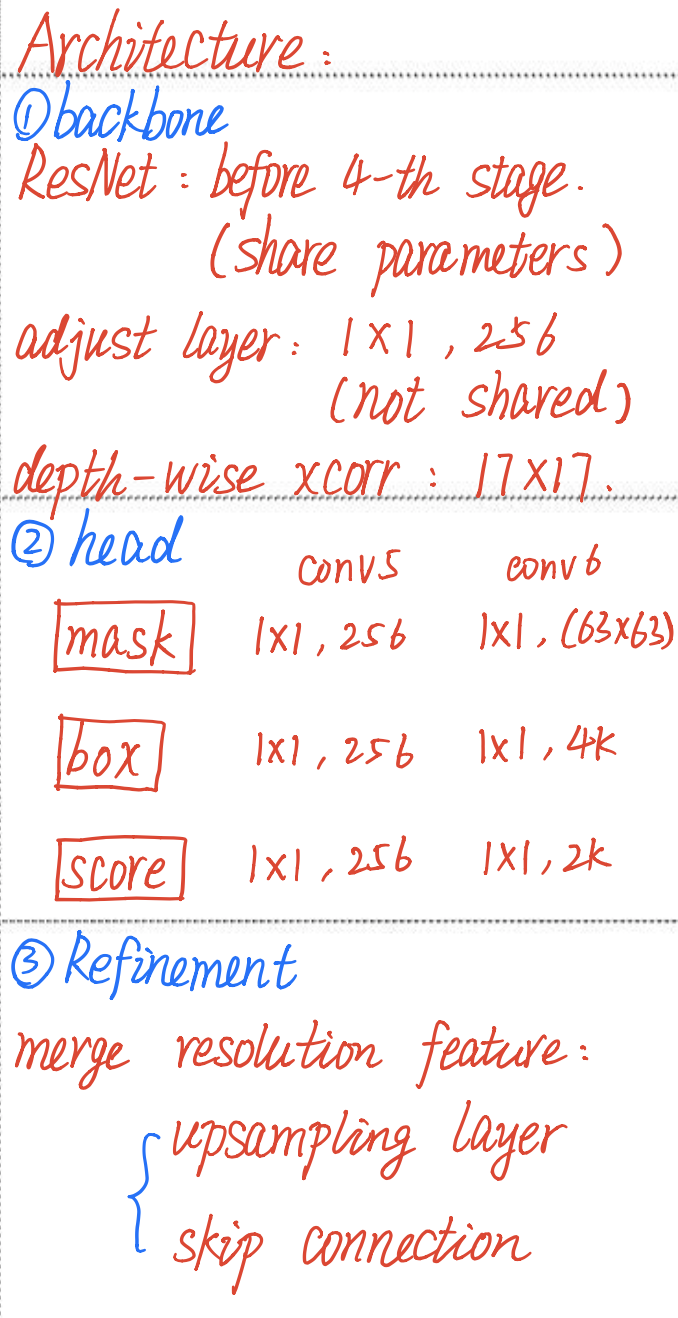 Architecture:
①backbone
ResNet: before 4-th stage.
(share parameters)
adjust layer: 1×1, 256
(not shared)
depth-wise xcorr: 17×17.
② head
conv5 conv6
mask 1×1, 256 1×1, (63×63)
box 1×1, 256 1×1, 4k
score 1×1, 256 1×1, 2k
③ Refinement
merge resolution feature:
upsampling layer
skip connection